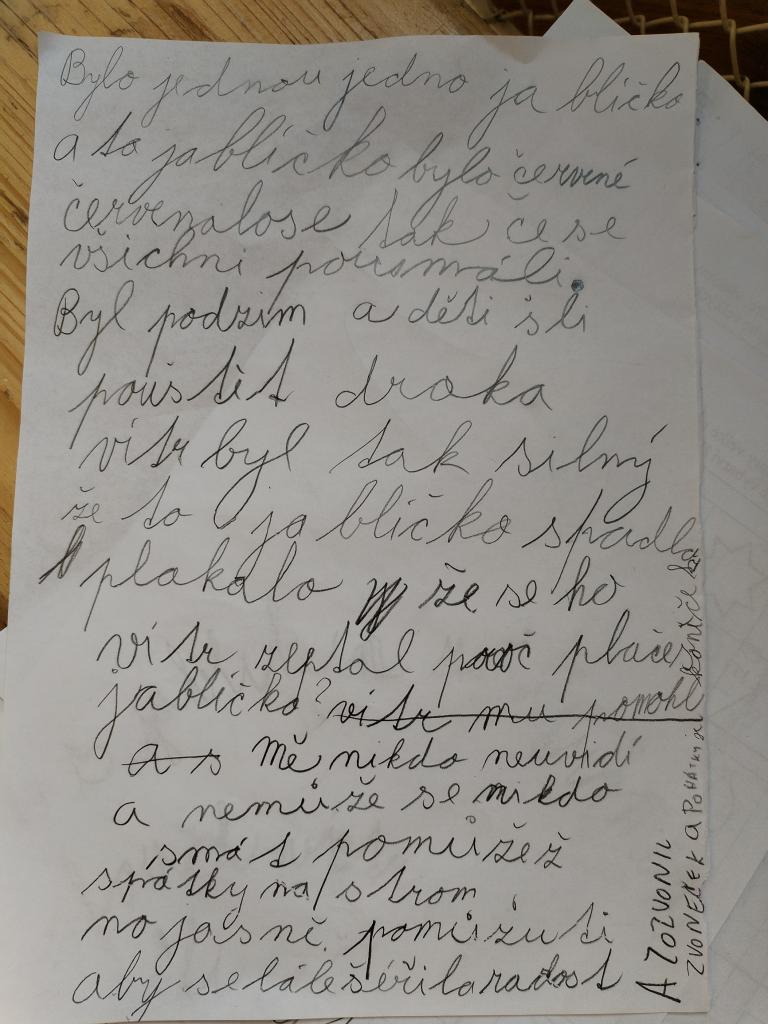 Bylo jednou jedno ja bličko
a to jabličko bylo červené
červenalose tak če se
všichni pousmáli.
Byl podzim a děti šli
poustět draka
vítr byl tak silný
že to ja bličko spadlo
plakalo že se ho
vítr zeptal proč plačeš
jabličko? vítr mu pomohl
a s Mě nikdo neuvidí
a nemůže se nikdo
smát pomůžež
spátky na strom
no jasně pomůžu ti
aby se lálešéřila radost
A ZOZVONIL
ZVONEČEK A POHÁTKY JE
koneče